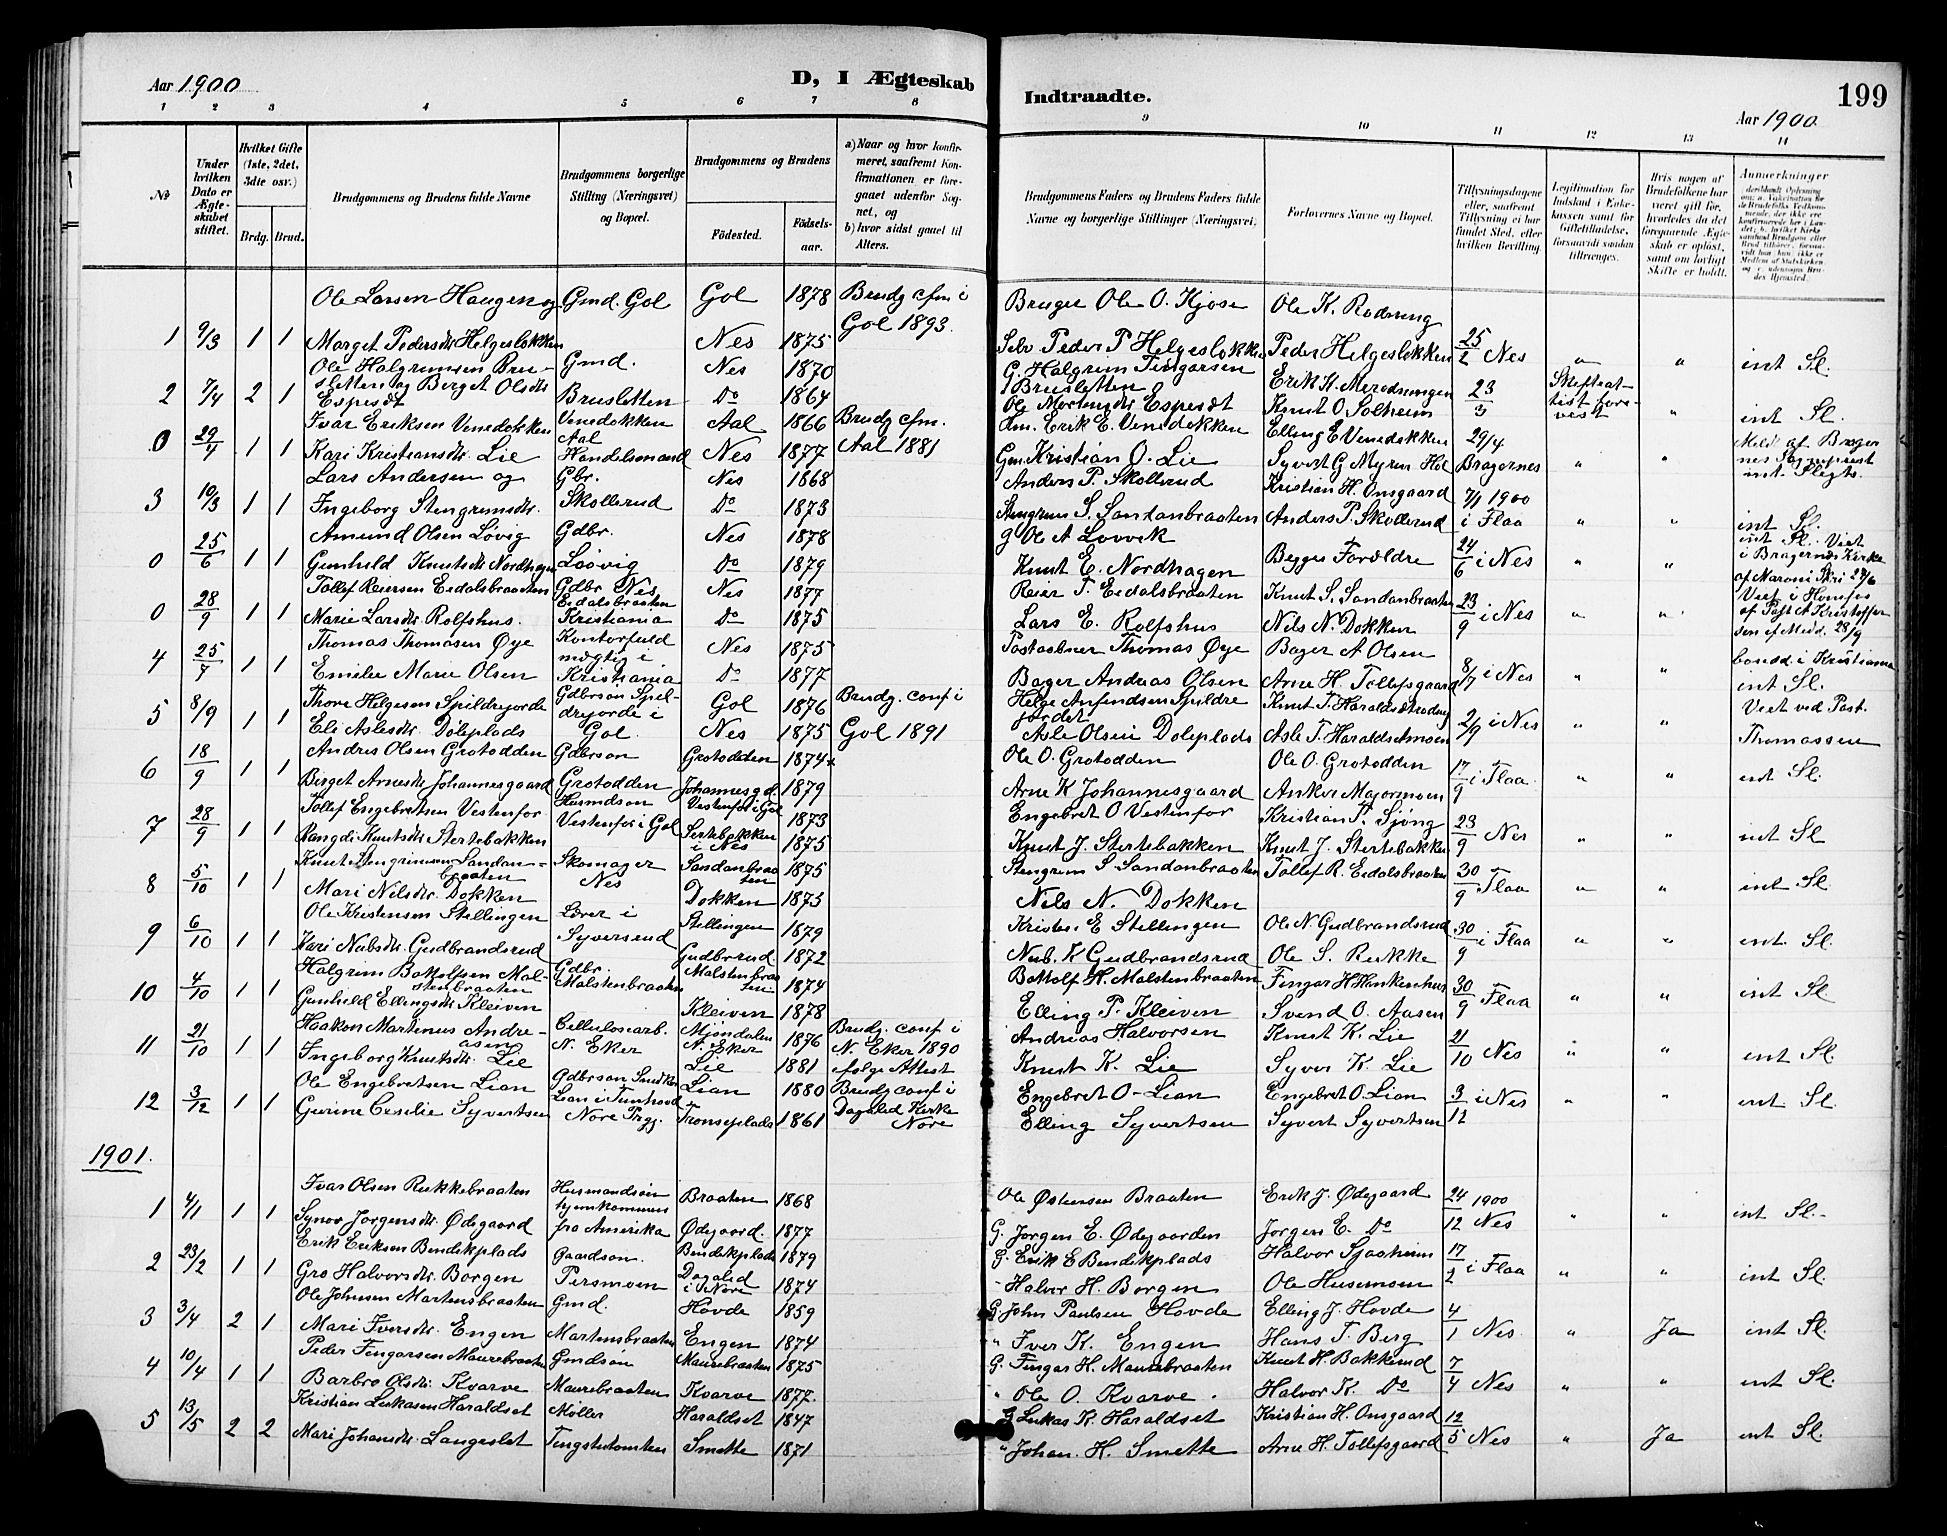 Aar 1900
D, I Ægteskab
Indtraadte.
199
Aar 1900
1 2 3 4 5 6 7 8
9 10 11 12 13 14
No
Under hvilken Dato er Ægteskabet stiftet.
Hvilket Gifte (1ste, 2det, 3die osv.)
Brdg. Brud.
Brudgommens og Brudens fulde Navne
Brudgommens borgerlige Stilling (Næringsvei) og Bopæl.
Brudgommens og Brudens
Fødested.
Fødselsaar.
a) Naar og hvor konfirmeret, saafremt Konfirmationen er foregaaet udenfor Sognet, og
b) hvor sidst gaaet til Alters.
Brudgommens Faders og Brudens Faders fulde Navne og borgerlige Stillinger (Næringsvei).
Forlovernes Navne og Bopæl.
Tillysningsdagene eller, saafremt Tillysning ei har fundet Sted, efter hvilken Bevilling.
Legitimation for Indskud i Enkekassen samt for Giftetilladelse, forsaavidt saadan tiltrænges.
Hvis nogen af Brudefolkene har været gift før, hvorledes da det foregaaende Ægteskab er opløst, samt om lovligt Skifte er holdt.
Anmærkninger
Ole Larsen Haugen og Gmd. Gol Gol 1878 Brudg cfm i Bruger Ole O. Kjøse Ole K. Rødning
1 9/3 1 1 Marget Pedersdtr Helgesløkken Nes 1875 Gol 1893. Selv. Peder P Helgesløkken Peder Helgeslokken 25/2 Nes " " int Sl.
Ole Halgrimsen Bru- Gmd. Nes 1870 G. Halgrim Fingarsen
2 7/4 2 1 sletten og Berget Olsdtr Bruslette Brusletten Do 1864 Erik K. 23/3 Skifteat- " int Sl.
Espesdt Ole Espesdt Knut O. Solheim
Ivar Eriksen Venedokken Venedokken Aal 1866 Brudg cfm. Erik E. Venedokken Elling E Venedokken 29/4
0 29/4 1 1 Kari Kristiansdtr. Lie Aal Handelsmand Nes 1877 Aal 1881 Gm. Kristian O. Lie Syvert G Myren Hol Bragernes " "
Lars Andersen og Gbr. Nes 1868 Anders P. Skollerud Kristian H. Onsgaard
3 10/3 1 1 Ingeborg Stengrimsdtr. Skollerud Do 1873 Stengrim S. Sandanbraaten Anders P. Skollerud 7/1 1900 i Flaa " " int Sl.
Amund Olsen Løvig Gdbr. Nes 1878 g Ole A Løvvik
0 25/6 1 1 Gunhild Knutsdtr Nordhagen Løvig Do 1879 Knut E. Nordhagen Begges Forældre 24/6 i Nes " " int Sl. Viet i Bragernes Kirke
Tollef Reiersen Eidalsbraaten Gdbr Nes Nes 1877 Reier T. Eidalsbraaten Knut S. Sandanbraaten
0 28/9 1 1 Marie Larsdtr Rolfshus. Eidalsbraaten Kristiania Do 1875 Lars E. Rolfshus Nils N. Dokken 23/9 i Nes " " Viet i Hønefos
Thomas Thomasen Øye Kontorfuld Nes 1875 Postaabner Thomas Øye Bager A Olsen
4 25/7 1 1 Emilie Marie Olsen mægtig i Kristiania Do 1877 Bager Andreas Olsen Arne H. Tollefsgaard 8/7 i Nes " " bosæd i Kristiania int Sl.
Thore Helgesen Spildrejorde Gdbrson Spil- Gol 1876 Brudg. conf i Helge Anfindsen Spildre
5 8/9 1 1 Eli Aslesdtr. Døleplads drejorde i Gol. Nes 1875 Gol 1891 jordet Asle Olsen Doleplads Asle T. Haraldsetmoen 2/9 i Nes " " Viet ved Past. Thomassen
Andris Olsen Grotodden Gdbrson Grotodden 1874 Ole O. Grotodden Ole O. Grotodden
6 18/9 1 1 Birget Arnesdtr Johannesgaard Grotodden Johannesgd. 1879 Arne K Johannesgaard Anker Majormoen 17/9 i Flaa " " int Sl.
Tollef Engebretsen Vestenfor Husmdson Vestenfor i Gol 1873 Engebret O Vestenfor Kristian T. Sjøng
7 28/9 1 1 Rangdi Knutsdtr Stertebakken Vestenfor i Gol Sertebakken i Nes 1875 Knut J. Stertebakken Knut J. Stertebakke 23/9 Nes " " int Sl
Knut Stengrimsen Sandan- Skomager Sandanbraa 1875 Stengrim S Sandanbraaten Tollef R. Eidalsbraaten
8 5/10 1 1 braaten Mari Nilsdtr. Dokken Nes ten Dokken 1875 Nils N. Dokken 30/9 Flaa " " int Sl.
Ole Kristensen Stillingen Lærer i Stillingen 1879 Kristen E Stillingen Ole N. Gudbrandsrud
9 6/10 1 1 Kari Nubsdtr. Gudbrandsrud Syversrud Gudbrsrud. 1872 Nub. K Gudbrandsrud Ole S. Rukke 30/9 i Flaa " " int. Sl.
Halgrim Bottolfsen Mal- Gdbr. Malstenbraa 1874 Bottolf H. Malstenbraaten Fingar H Henkenhus
10 4/10 1 1 stenbraaten Gunhild Ellingsdtr Kleiven Malstenbraaten ten Kleiven 1878 Elling P. Kleiven Svend O. Aasen 30/9 Flaa " " int Sl.
Haakon Martenus Andre- Cellulosearb. Mjøndalen 1876 Brudg. conf i Andreas Halvorsen Knut K. Lie
11 21/10 1 1 asen Ingeborg Knutsdtr. Lie N. Eker N. Eker Lie 1881 N. Eker 1890 følge Attest Knut K. Lie Syver K. Lie 21/10 Nes " " int Sl.
Ole Engebretsen Lian Gdbrson Lian 1880 Brudg conf i Engebret O. Lian Engebret O. Lian
12 3/12 1 1 Gurine Cesilie Syvertsen Lian i Tunhovd Nore Prgj. Tronseplads 1861 Dagalid Kirke Nore Elling Syvertsen Syvert Syvertsen 3/12 i Nes " " int. Sl.
1901.
Ivar Olsen Rukkebraaten Husmandsøn Braaten 1868 Ole Østensen Braaten Erik J. Ødegaard
1 4/1 1 1 Synør Jorgensdtr. Ødegaard hjemkommen fra Amerika Ødegaard. 1877 G. Jorgen E. Ødegaarden Jorgen E. Do 24/12 1900 Nes " " int Sl.
Erik Eriksen Bendikplads Gaardson. Bendikplads 1879 G. Erik E Bendikplads Halvor Sjaaheim
2 23/2 1 1 Gro Halvorsdtr. Borgen Persmoen Dagalid i Nore 1874 Halvor H. Borgen Ole Husemoen 17/2 i Flaa " " int Sl.
Ole Johnsen Martensbraaten Gmd. Hovde 1859 G. John Paulsen Hovde Elling J. Hovde
3 3/4 2 1 Mari Iversdtr. Engen Martensbraaten Engen 1874 " Iver K. Engen Hans T. Berg 4/1 Nes. " Ja int Sl.
Peder Fingarsen Maurebraaten Gmdsøn Maurebraaten 1875 G. Fingar H. Maurebraaten Knut H. Bakkerud
4 10/4 1 1 Barbro Olsdtr. Kvarve Maurebraaten Kvarve 1877. " Ole O. Kvarve. Halvor K. Do 7/4 Nes " " int Sl.
Kristian Lukasen Haraldset Møller Haraldset 1847 G Lukas K. Haraldset Kristian H. Onsgaard
5 13/5 2 2 Mari Johansdtr. Langeslet Tingstutomten Smette 1871 " Johan. H. Smette Arne H. Tollefsgaard 12/5 Nes " Ja int Sl.